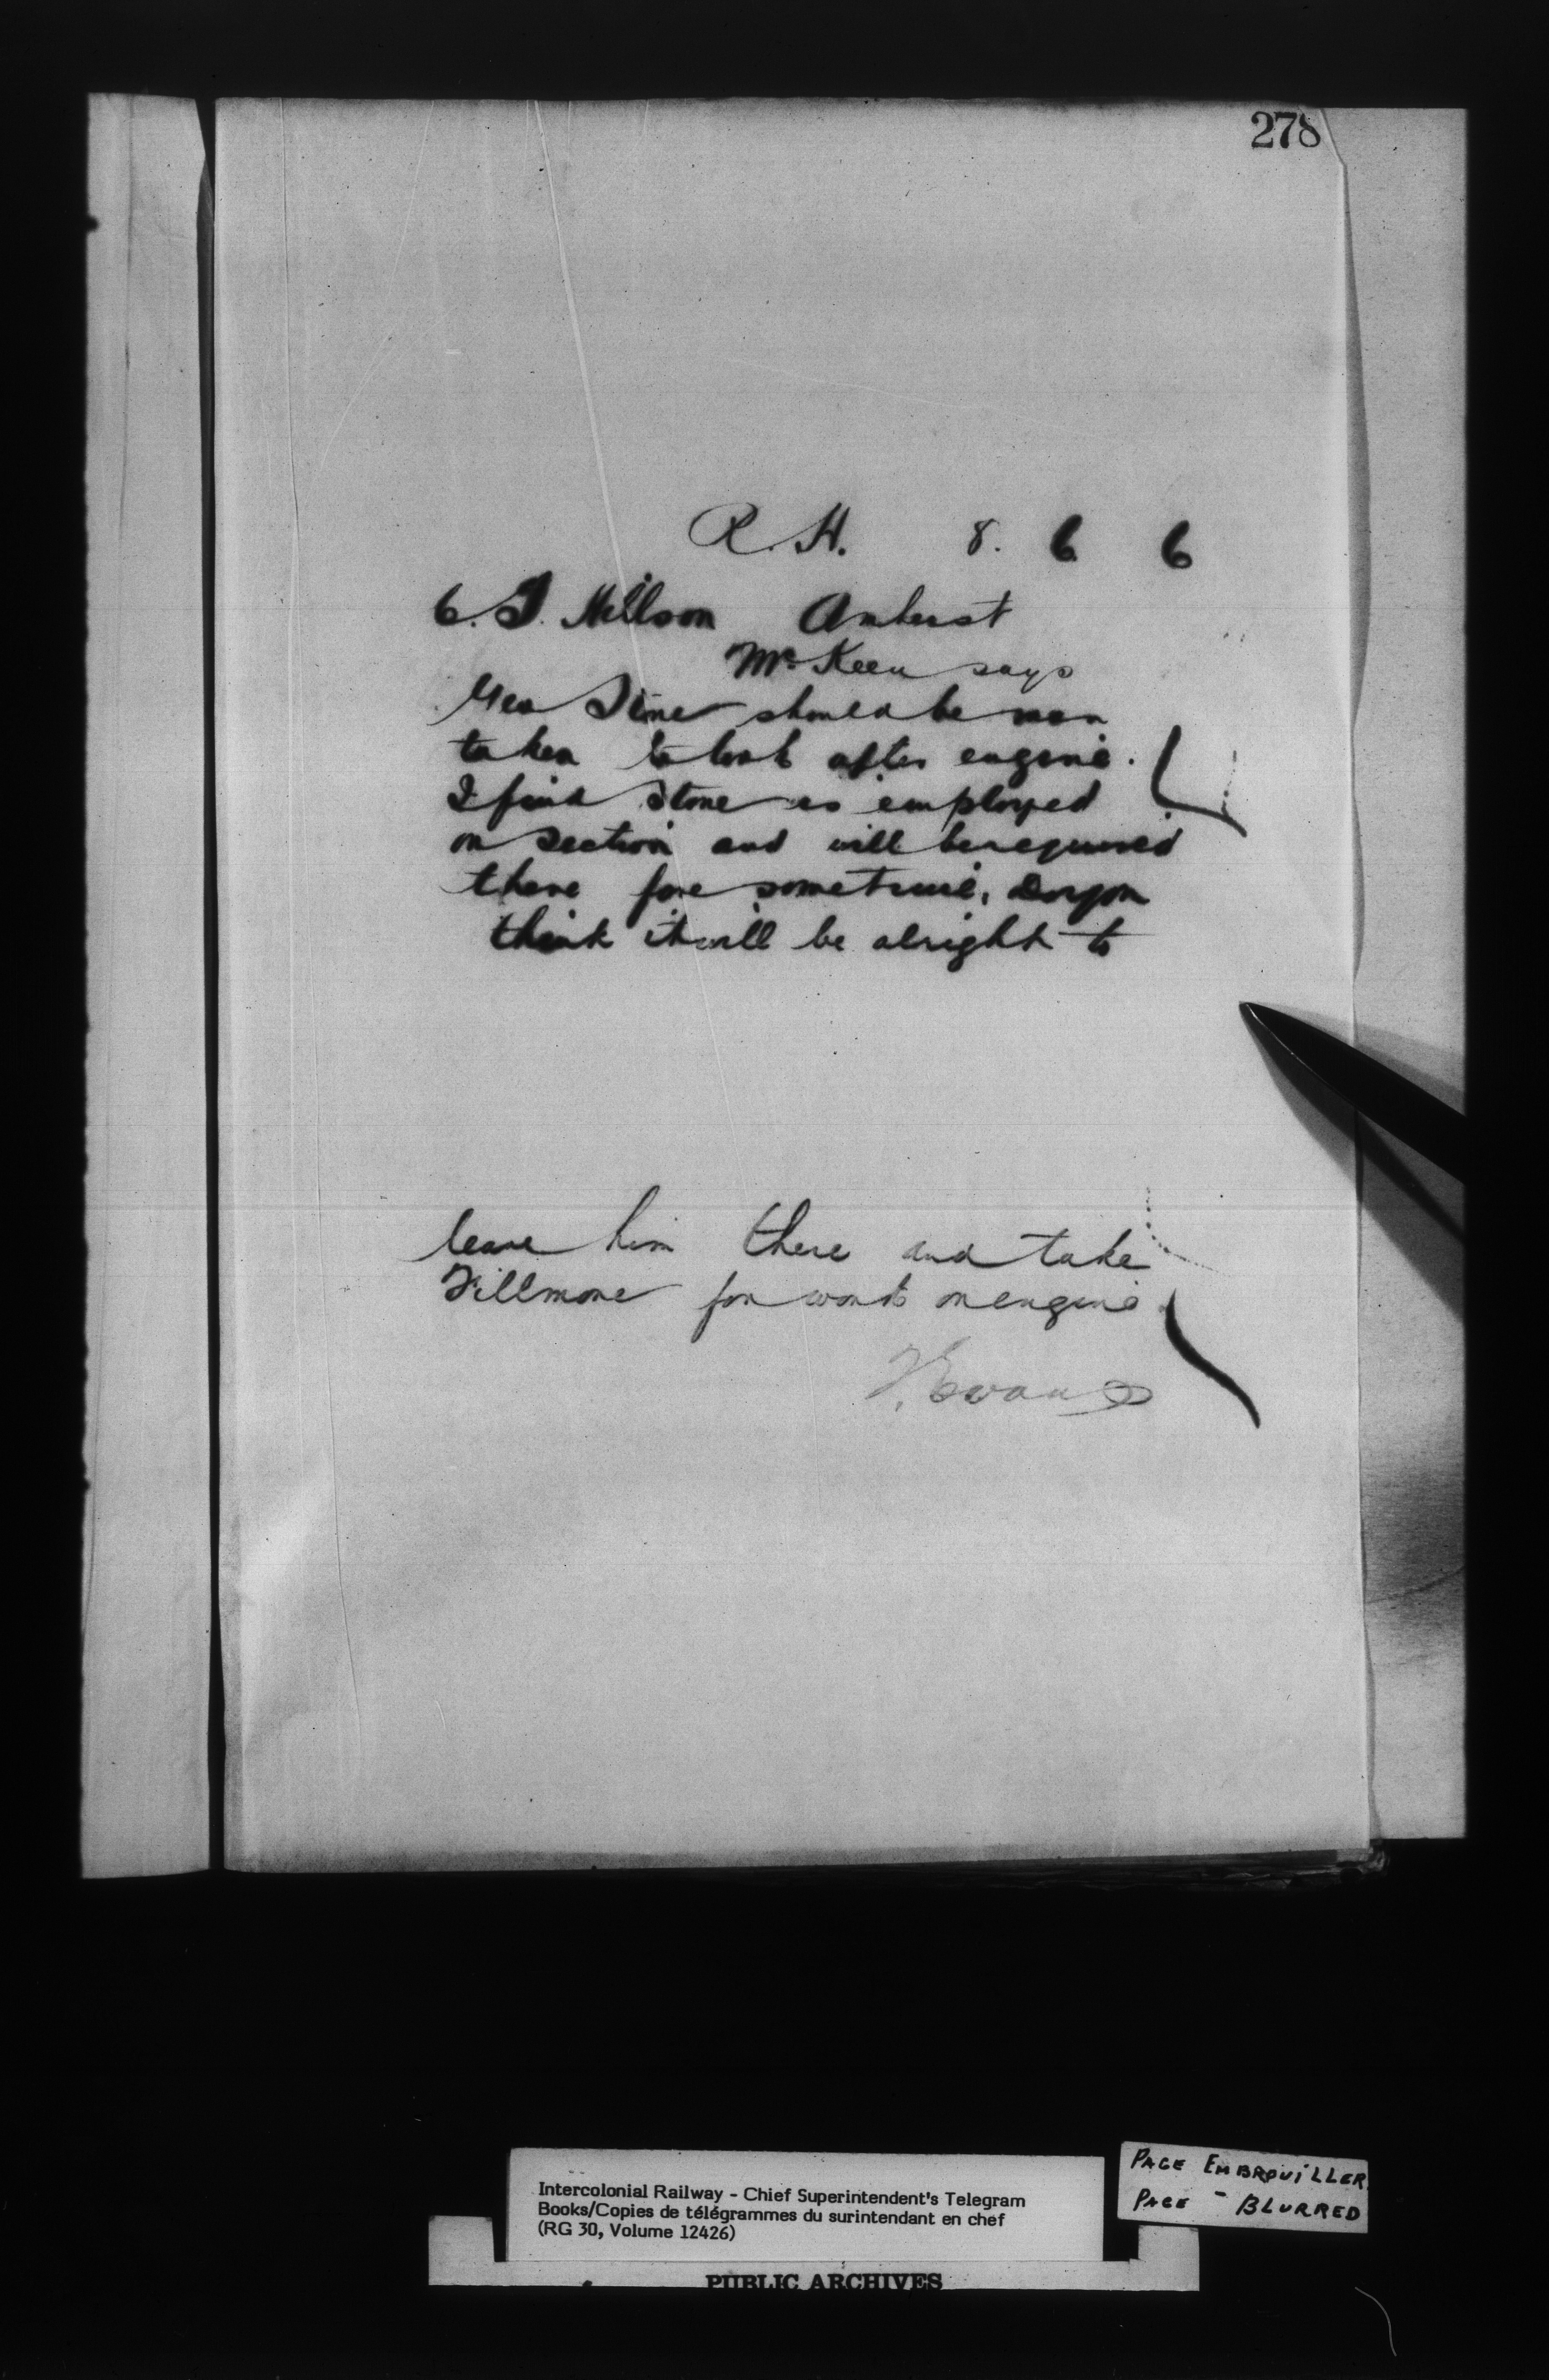 278
R. H. 8. 6 6
Amherst
McKeen says
Geo Stone should be man
taken to look after engine.
I find Stone is employed
on section and will be required
there for some time. Do you
think it will be alright to
leave him there and take
Fillmore for work on engine
Evans
Intercolonial Railway - Chief Superintendent's Telegram
Books/Copies de télégrammes du surintendant en chef
(RG 30, Volume 12426)
PAGE EMBROUILLER
PAGE - BLURRED
PUBLIC ARCHIVES